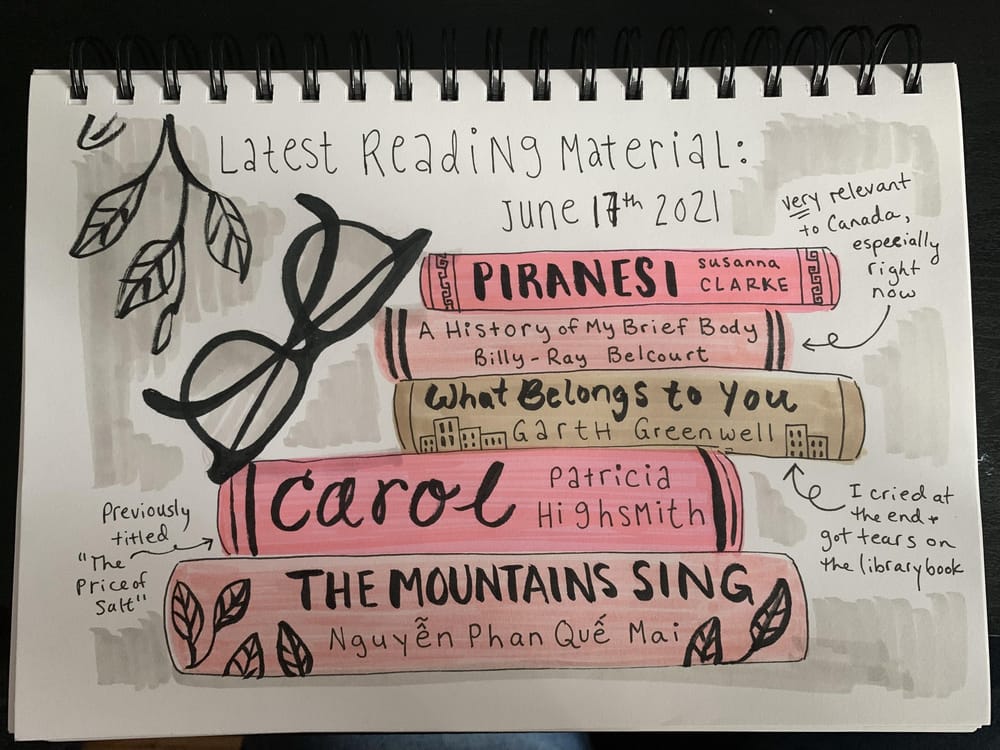 Latest Reading Material:
June 17th 2021
very relevant
to Canada,
especially
right
now
PIRANESI
susanna
CLARKE
A History of My Brief Body
Billy-Ray Belcourt
What Belongs to You
Garth Greenwell
I cried at
the end +
got tears on
the library book
carol
Patricia
Highsmith
Previously
titled
"The
Price of
Salt"
THE MOUNTAINS SING
Nguyễn Phan Quế Mai